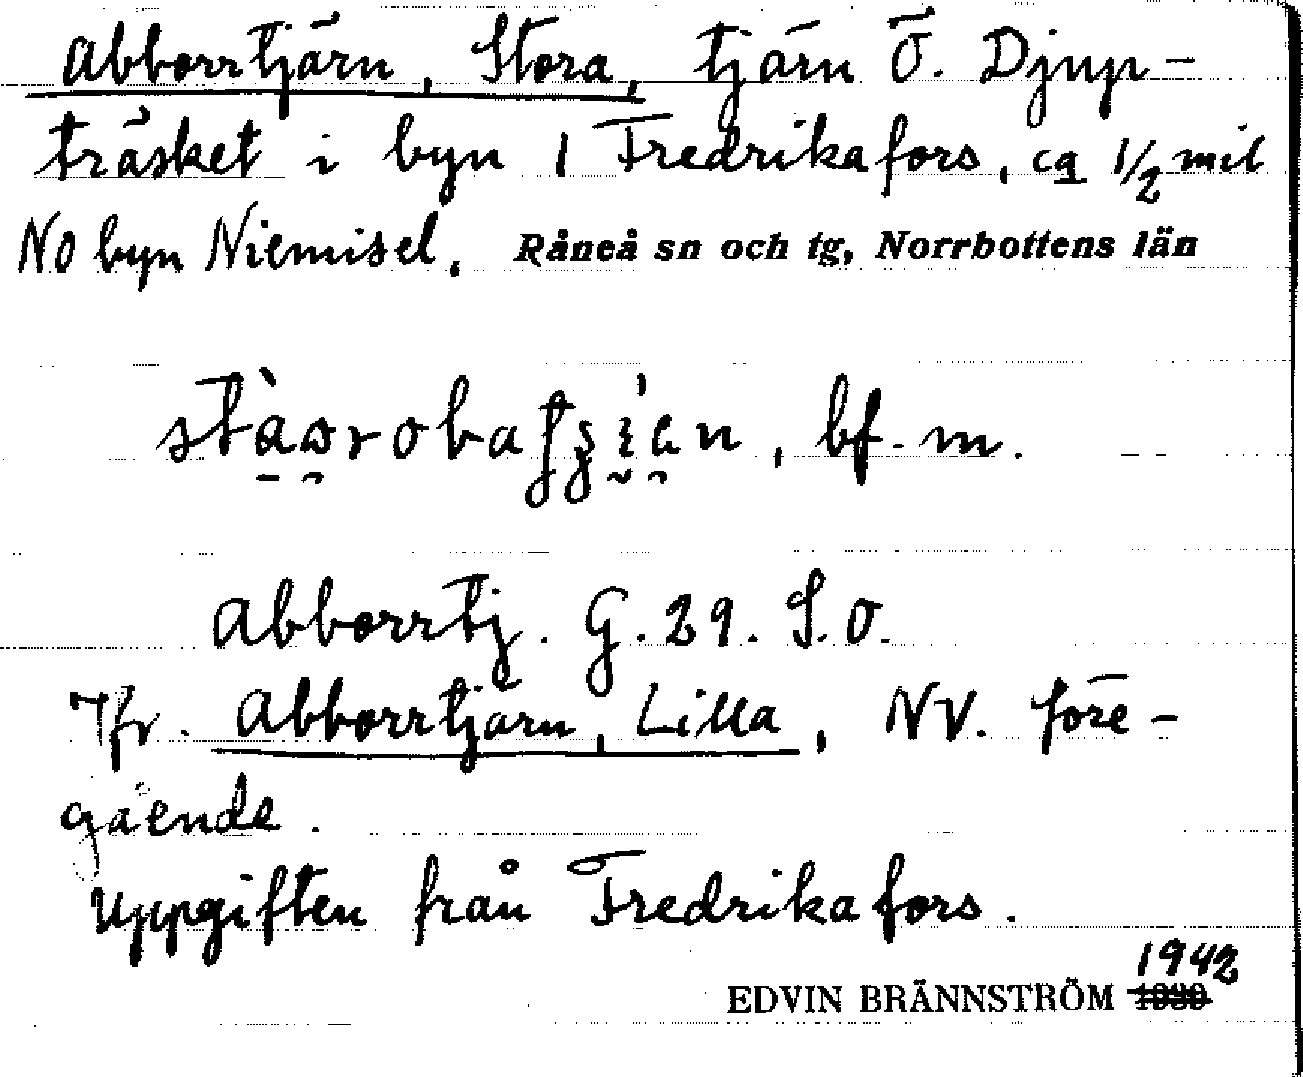 Abborrtjärn, Stora, tjärn Ö. Djup-
träsket i byn 1 Fredrikafors, ca 1/2 mil
NO byn Niemisel. Råneå sn och tg, Norrbottens län
bf. m.
Abborrtj. G. 29. S.O.
Jfr. Abborrtjärn, Lilla, NV. före-
gående.
Uppgiften från Fredrikafors.
1942
EDVIN BRÄNNSTRÖM 1930